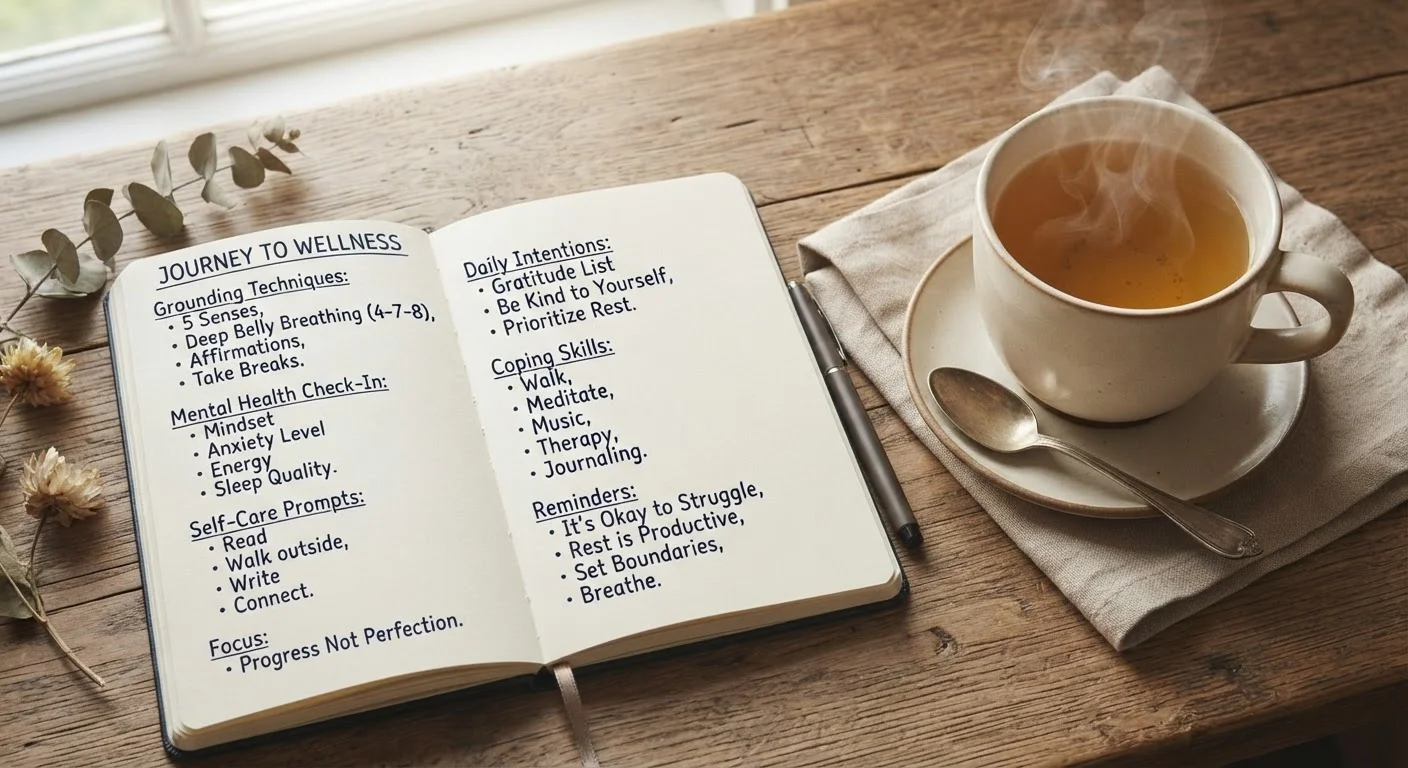 JOURNEY TO WELLNESS
Grounding Techniques:
• 5 Senses,
• Deep Belly Breathing (4-7-8),
• Affirmations,
• Take Breaks.
Mental Health Check-In:
• Mindset
• Anxiety Level
• Energy
• Sleep Quality.
Self-Care Prompts:
• Read
• Walk outside,
• Write
• Connect.
Focus:
• Progress Not Perfection.
Daily Intentions:
• Gratitude List
• Be Kind to Yourself,
• Prioritize Rest.
Coping Skills:
• Walk,
• Meditate,
• Music,
• Therapy,
• Journaling.
Reminders:
• It's Okay to Struggle,
• Rest is Productive,
• Set Boundaries,
• Breathe.